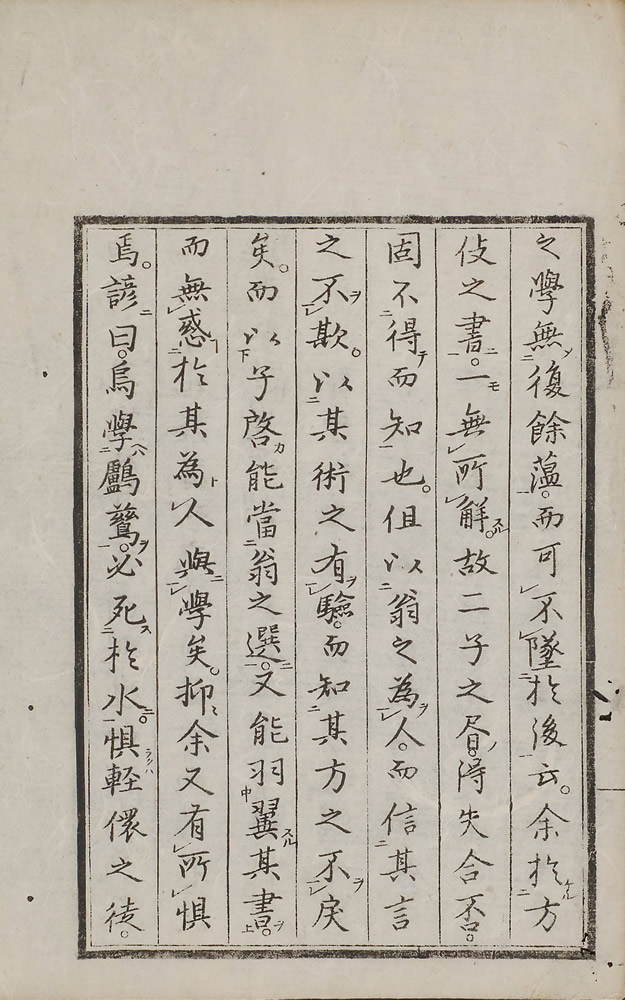 之學無復餘蘊。而可不墜於後云。余於方
伎之書。一無所解。故二子之㫺。得失合否。
固不得而知也。但以翁之為人。而信其言
之不欺。以其術之有驗。而知其方之不戾
矣。而以子啓能當翁之選。又能羽翼其書。
而無惑於其為人與學矣。抑余又有所惧
焉。諺曰。烏學鸕鶿。必死於水。惧軽儇之徒。